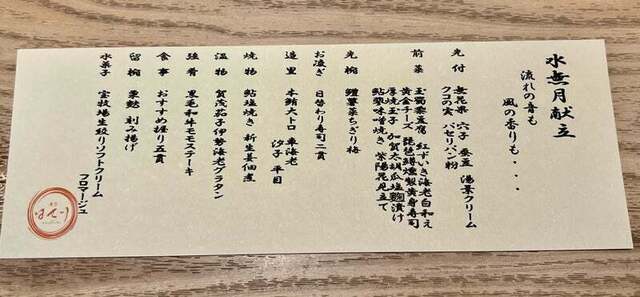 水無月献立
流れの音も
風の香りも・・・
先付
無花果 穴子 蚕豆 湯葉クリーム
クコの実 パセリパン粉
前菜
玉蜀黍豆腐 紅ずいき海老白和え
黄金チーズ 琵琶鱒燻製黄身寿司
厚焼玉子 加賀太胡瓜塩麹漬け
鮎梨味噌焼き 紫陽花見立て
先椀
鱧蓴菜ちぎり梅
お凌ぎ
日替わり寿司二貫
造里
本鮪大トロ 車海老
汐子 平目
焼物
鮎塩焼き 新生姜佃煮
温物
賀茂茄子伊勢海老グラタン
強肴
黒毛和牛モモステーキ
食事
おすすめ握り五貫
留椀
粟麩 刻み揚げ
水菓子
宝牧場生絞りソフトクリーム
フロマージュ